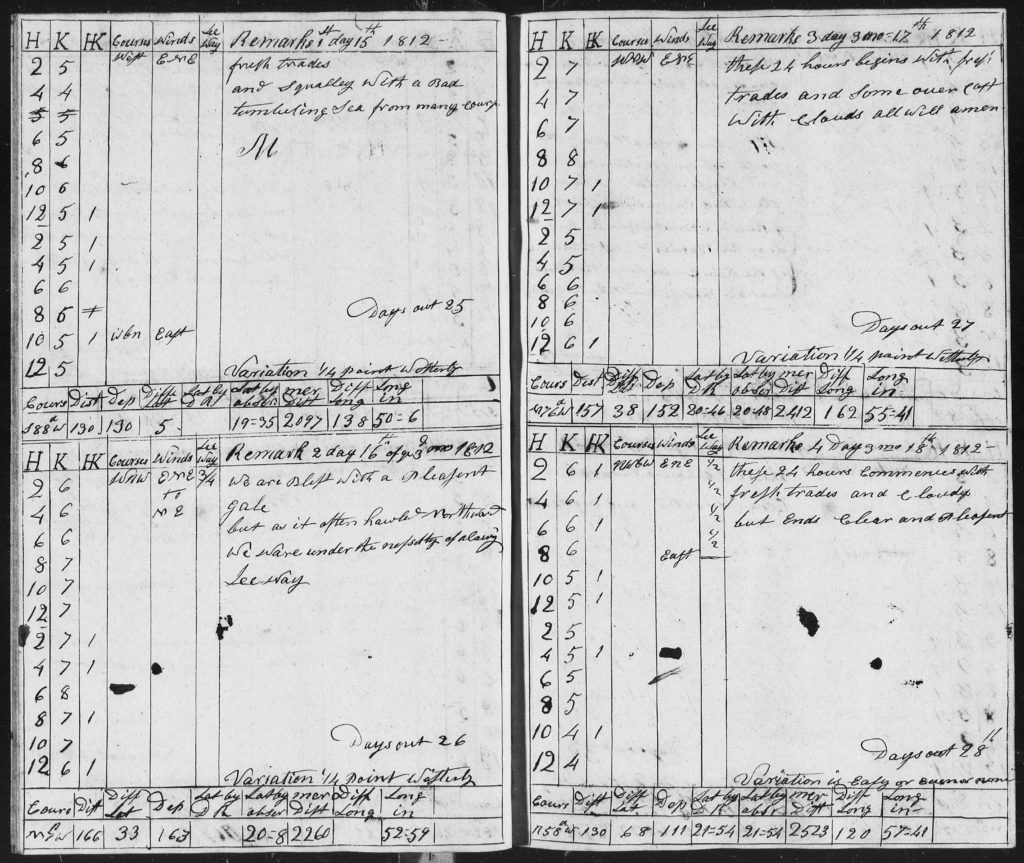 H K HK Courses Winds Lee Way Remarks 1st day 15th 1812
2 5 West ENE fresh trades
4 4 and Squalley With a Bad
5 5 tumbuling Sea from many Cours
6 5
8 6 M
10 6
12 5 1
2 5 1
4 5 1
6 6
8 5 Days out 25
10 5 1 WbN East
12 5 Variation 1/4 point Westerly
Cours Dist Dep Diff Latt Lat by DR Lat by obser mer Dist Diff Long Long in
S88°W 130 130 5 19=35 2097 138 50=6
H K HK Courses Winds Lee Way Remark 2 day 16th of ye 3d mo 1812
2 6 WNW ENE 3/4 We are Blest With a Pleasent
4 6 to NE gale
6 6 but as it often hawled Northward
8 7 We Ware under the of alowing
10 7 Lee Way
12 7
2 7 1
4 7 1
6 8
8 7 1
10 7 Days out 26
12 6 1 Variation 1/4 point Westerly
Cours Dist Diff Lat Dep Lat by DR Lat by obser mer Dist Diff Long Long in
166 33 163 20=8 2260 52=59
H K HK Courses Winds Lee Way Remarks 3 day 3 mo 17th 1812
2 7 WNW ENE these 24 hours begins With fresh
4 7 trades and Some over Cast
6 7 With Clouds all Well amen
8 8
10 7 1
12 7 1
2 5
4 5
6 6
8 6
10 6 Days out 27
12 6 1 Variation 1/4 point Westerly
Cours Dist Diff Lat Dep Lat by DR Lat by obser mer Dist Diff Long Long in
N76°W 157 38 152 20=46 20=48 2412 162 55=41
H K HK Courses Winds Lee Way Remarks 4 Day 3 mo 18th 1812
2 6 1 NWbW ENE 1/2 these 24 hours Commences With
4 6 1 1/2 fresh trades and Cloudy
6 6 1 1/2 but Ends Clear and Pleasent
8 6 East 1/2
10 5 1
12 5 1
2 5
4 5 1
6 5
8 5
10 4 1 Days out 28th
12 4 Variation is Easy or none
Cours Dist Diff Lat Dep Lat by DR Lat by obser mer Dist Diff Long Long in
N58°W 130 68 111 21=54 21=54 2523 120 57=41